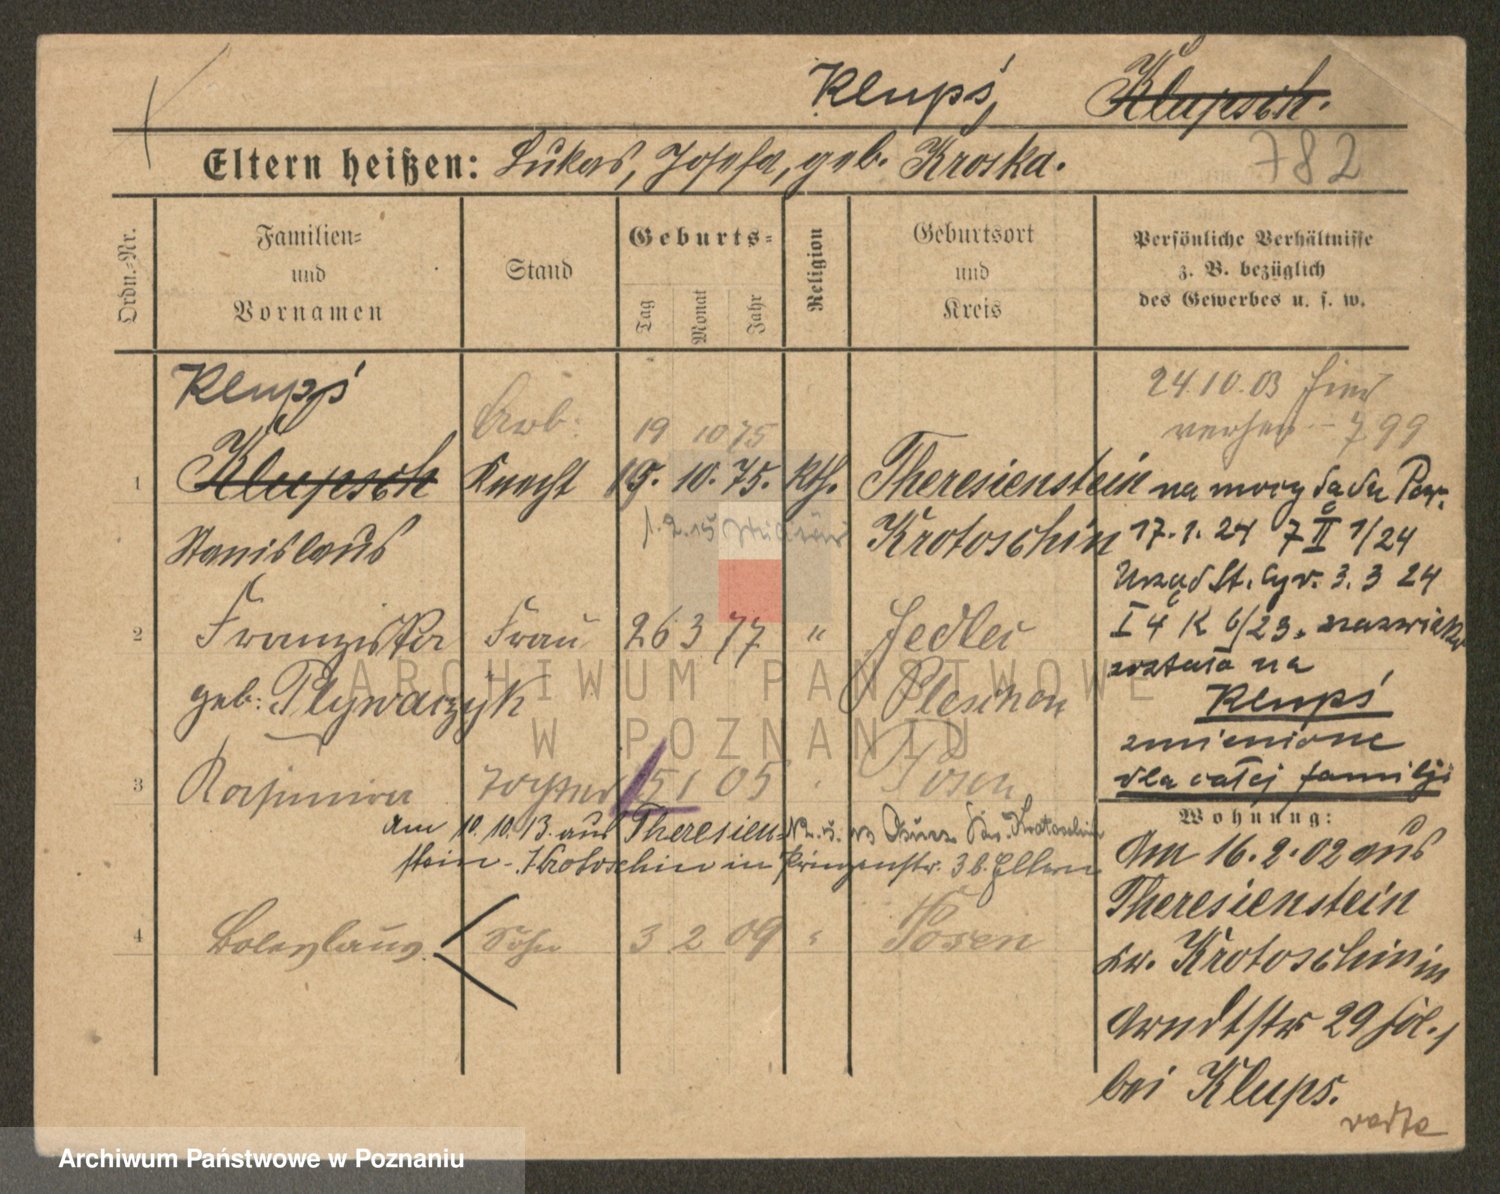 Klupś, Klupsch.
Eltern heißen: Lukas, Josefa, geb. Kroska.
782
Ordn.-Nr.
Familien-
und
Vornamen
Stand
Geburts-
Tag
Monat
Jahr
Religion
Geburtsort
und
Kreis
Persönliche Verhältnisse
z. B. bezüglich
des Gewerbes u. s. w.
Klupś
Arb.
19 10 75
1 Klupsch Knecht 19. 10. 75. kth. Theresienstein
Stanislaus Krotoschin
2 Franziska Frau 26 3 77 " Jedlec
geb: Plywaczyk Pleschen
3 Kasimira Tochter 5 1 05 Posen
am 10.10.13. aus Theresien-
stein - Krotoschin in Prinzenstr. 36. Eltern
4 Boleslaus Sohn 3 2 09 " Posen
24.10.03 hier
verh. 7 99
na mocy
17.1.24 7 II 1/24
Urząd St. Cyw. 3. 3 24
I 4 K 6/23. nazwisko
zostało na
Klupś
zmienione
dla całej familji
Wohnung:
Am 16.2.02 aus
Theresienstein
Kr. Krotoschin in
Arndtstr 29
bei Klups.
verte
ARCHIWUM PAŃSTWOWE
W POZNANIU
Archiwum Państwowe w Poznaniu